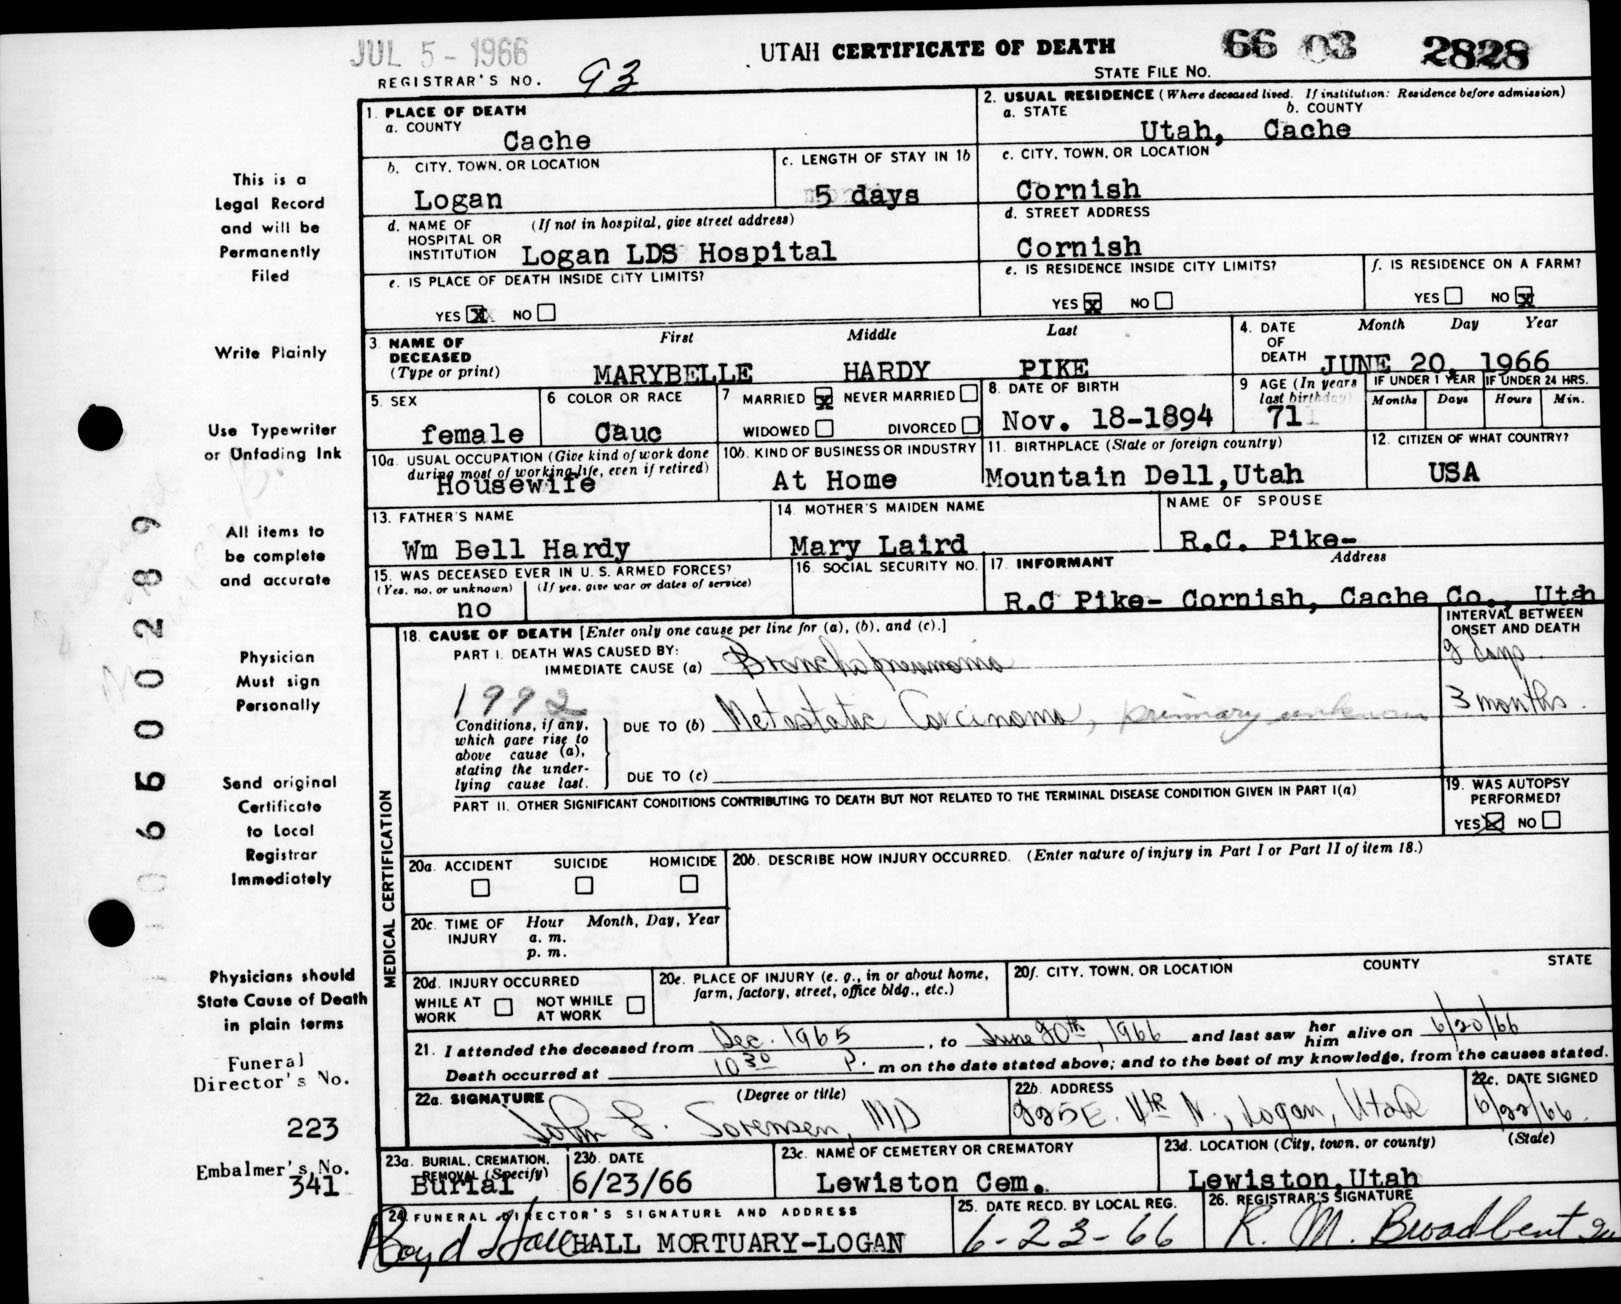 JUL 5 - 1966
UTAH CERTIFICATE OF DEATH
66 03 2828
REGISTRAR'S NO. 93
STATE FILE NO.
This is a
Legal Record
and will be
Permanently
Filed
Write Plainly
Use Typewriter
or Unfading Ink
All items to
be complete
and accurate
Physician
Must sign
Personally
Send original
Certificate
to Local
Registrar
Immediately
Physicians should
State Cause of Death
in plain terms
Funeral
Director's No.
223
Embalmer's No.
341
06600289
1. PLACE OF DEATH
a. COUNTY
Cache
2. USUAL RESIDENCE (Where deceased lived. If institution: Residence before admission)
a. STATE b. COUNTY
Utah, Cache
b. CITY, TOWN, OR LOCATION
Logan
c. LENGTH OF STAY IN 1b
5 days
c. CITY, TOWN, OR LOCATION
Cornish
d. NAME OF HOSPITAL OR INSTITUTION (If not in hospital, give street address)
Logan LDS Hospital
d. STREET ADDRESS
Cornish
e. IS PLACE OF DEATH INSIDE CITY LIMITS?
YES X NO
e. IS RESIDENCE INSIDE CITY LIMITS?
YES X NO
f. IS RESIDENCE ON A FARM?
YES NO X
3. NAME OF DECEASED (Type or print)
First Middle Last
MARYBELLE HARDY PIKE
4. DATE OF DEATH
Month Day Year
JUNE 20, 1966
5. SEX
female
6 COLOR OR RACE
Cauc
7 MARRIED X NEVER MARRIED
WIDOWED DIVORCED
8. DATE OF BIRTH
Nov. 18-1894
9 AGE (In years last birthday)
71
IF UNDER 1 YEAR
Months Days
IF UNDER 24 HRS.
Hours Min.
10a. USUAL OCCUPATION (Give kind of work done during most of working life, even if retired)
Housewife
10b. KIND OF BUSINESS OR INDUSTRY
At Home
11. BIRTHPLACE (State or foreign country)
Mountain Dell, Utah
12. CITIZEN OF WHAT COUNTRY?
USA
13. FATHER'S NAME
Wm Bell Hardy
14. MOTHER'S MAIDEN NAME
Mary Laird
NAME OF SPOUSE
R.C. Pike-
15. WAS DECEASED EVER IN U. S. ARMED FORCES?
(Yes, no, or unknown) (If yes, give war or dates of service)
no
16. SOCIAL SECURITY NO.
17. INFORMANT Address
R.C Pike- Cornish, Cache Co., Utah
MEDICAL CERTIFICATION
18. CAUSE OF DEATH [Enter only one cause per line for (a), (b), and (c).]
INTERVAL BETWEEN ONSET AND DEATH
PART I. DEATH WAS CAUSED BY:
IMMEDIATE CAUSE (a) Bronchopneumonia
days
1992
Conditions, if any, which gave rise to above cause (a), stating the underlying cause last.
DUE TO (b) Metastatic Carcinoma, primary unknown 3 months.
DUE TO (c)
PART II. OTHER SIGNIFICANT CONDITIONS CONTRIBUTING TO DEATH BUT NOT RELATED TO THE TERMINAL DISEASE CONDITION GIVEN IN PART I(a)
19. WAS AUTOPSY PERFORMED?
YES X NO
20a. ACCIDENT SUICIDE HOMICIDE
20b. DESCRIBE HOW INJURY OCCURRED. (Enter nature of injury in Part I or Part II of item 18.)
20c. TIME OF INJURY Hour Month, Day, Year
a. m.
p. m.
20d. INJURY OCCURRED
WHILE AT WORK NOT WHILE AT WORK
20e. PLACE OF INJURY (e. g., in or about home, farm, factory, street, office bldg., etc.)
20f. CITY, TOWN, OR LOCATION COUNTY STATE
21. I attended the deceased from Dec. 1965, to June 20th, 1966 and last saw her him alive on 6/20/66
Death occurred at 10 30 P. m on the date stated above; and to the best of my knowledge, from the causes stated.
22a. SIGNATURE (Degree or title)
John F. Sorensen, MD
22b. ADDRESS
225 E. 4th N., Logan, Utah
22c. DATE SIGNED
6/22/66.
23a. BURIAL, CREMATION, REMOVAL (Specify)
Burial
23b. DATE
6/23/66
23c. NAME OF CEMETERY OR CREMATORY
Lewiston Cem.
23d. LOCATION (City, town, or county) (State)
Lewiston, Utah
24. FUNERAL DIRECTOR'S SIGNATURE AND ADDRESS
Boyd Hall HALL MORTUARY-LOGAN
25. DATE RECD. BY LOCAL REG.
6-23-66
26. REGISTRAR'S SIGNATURE
R. M. Broadbent